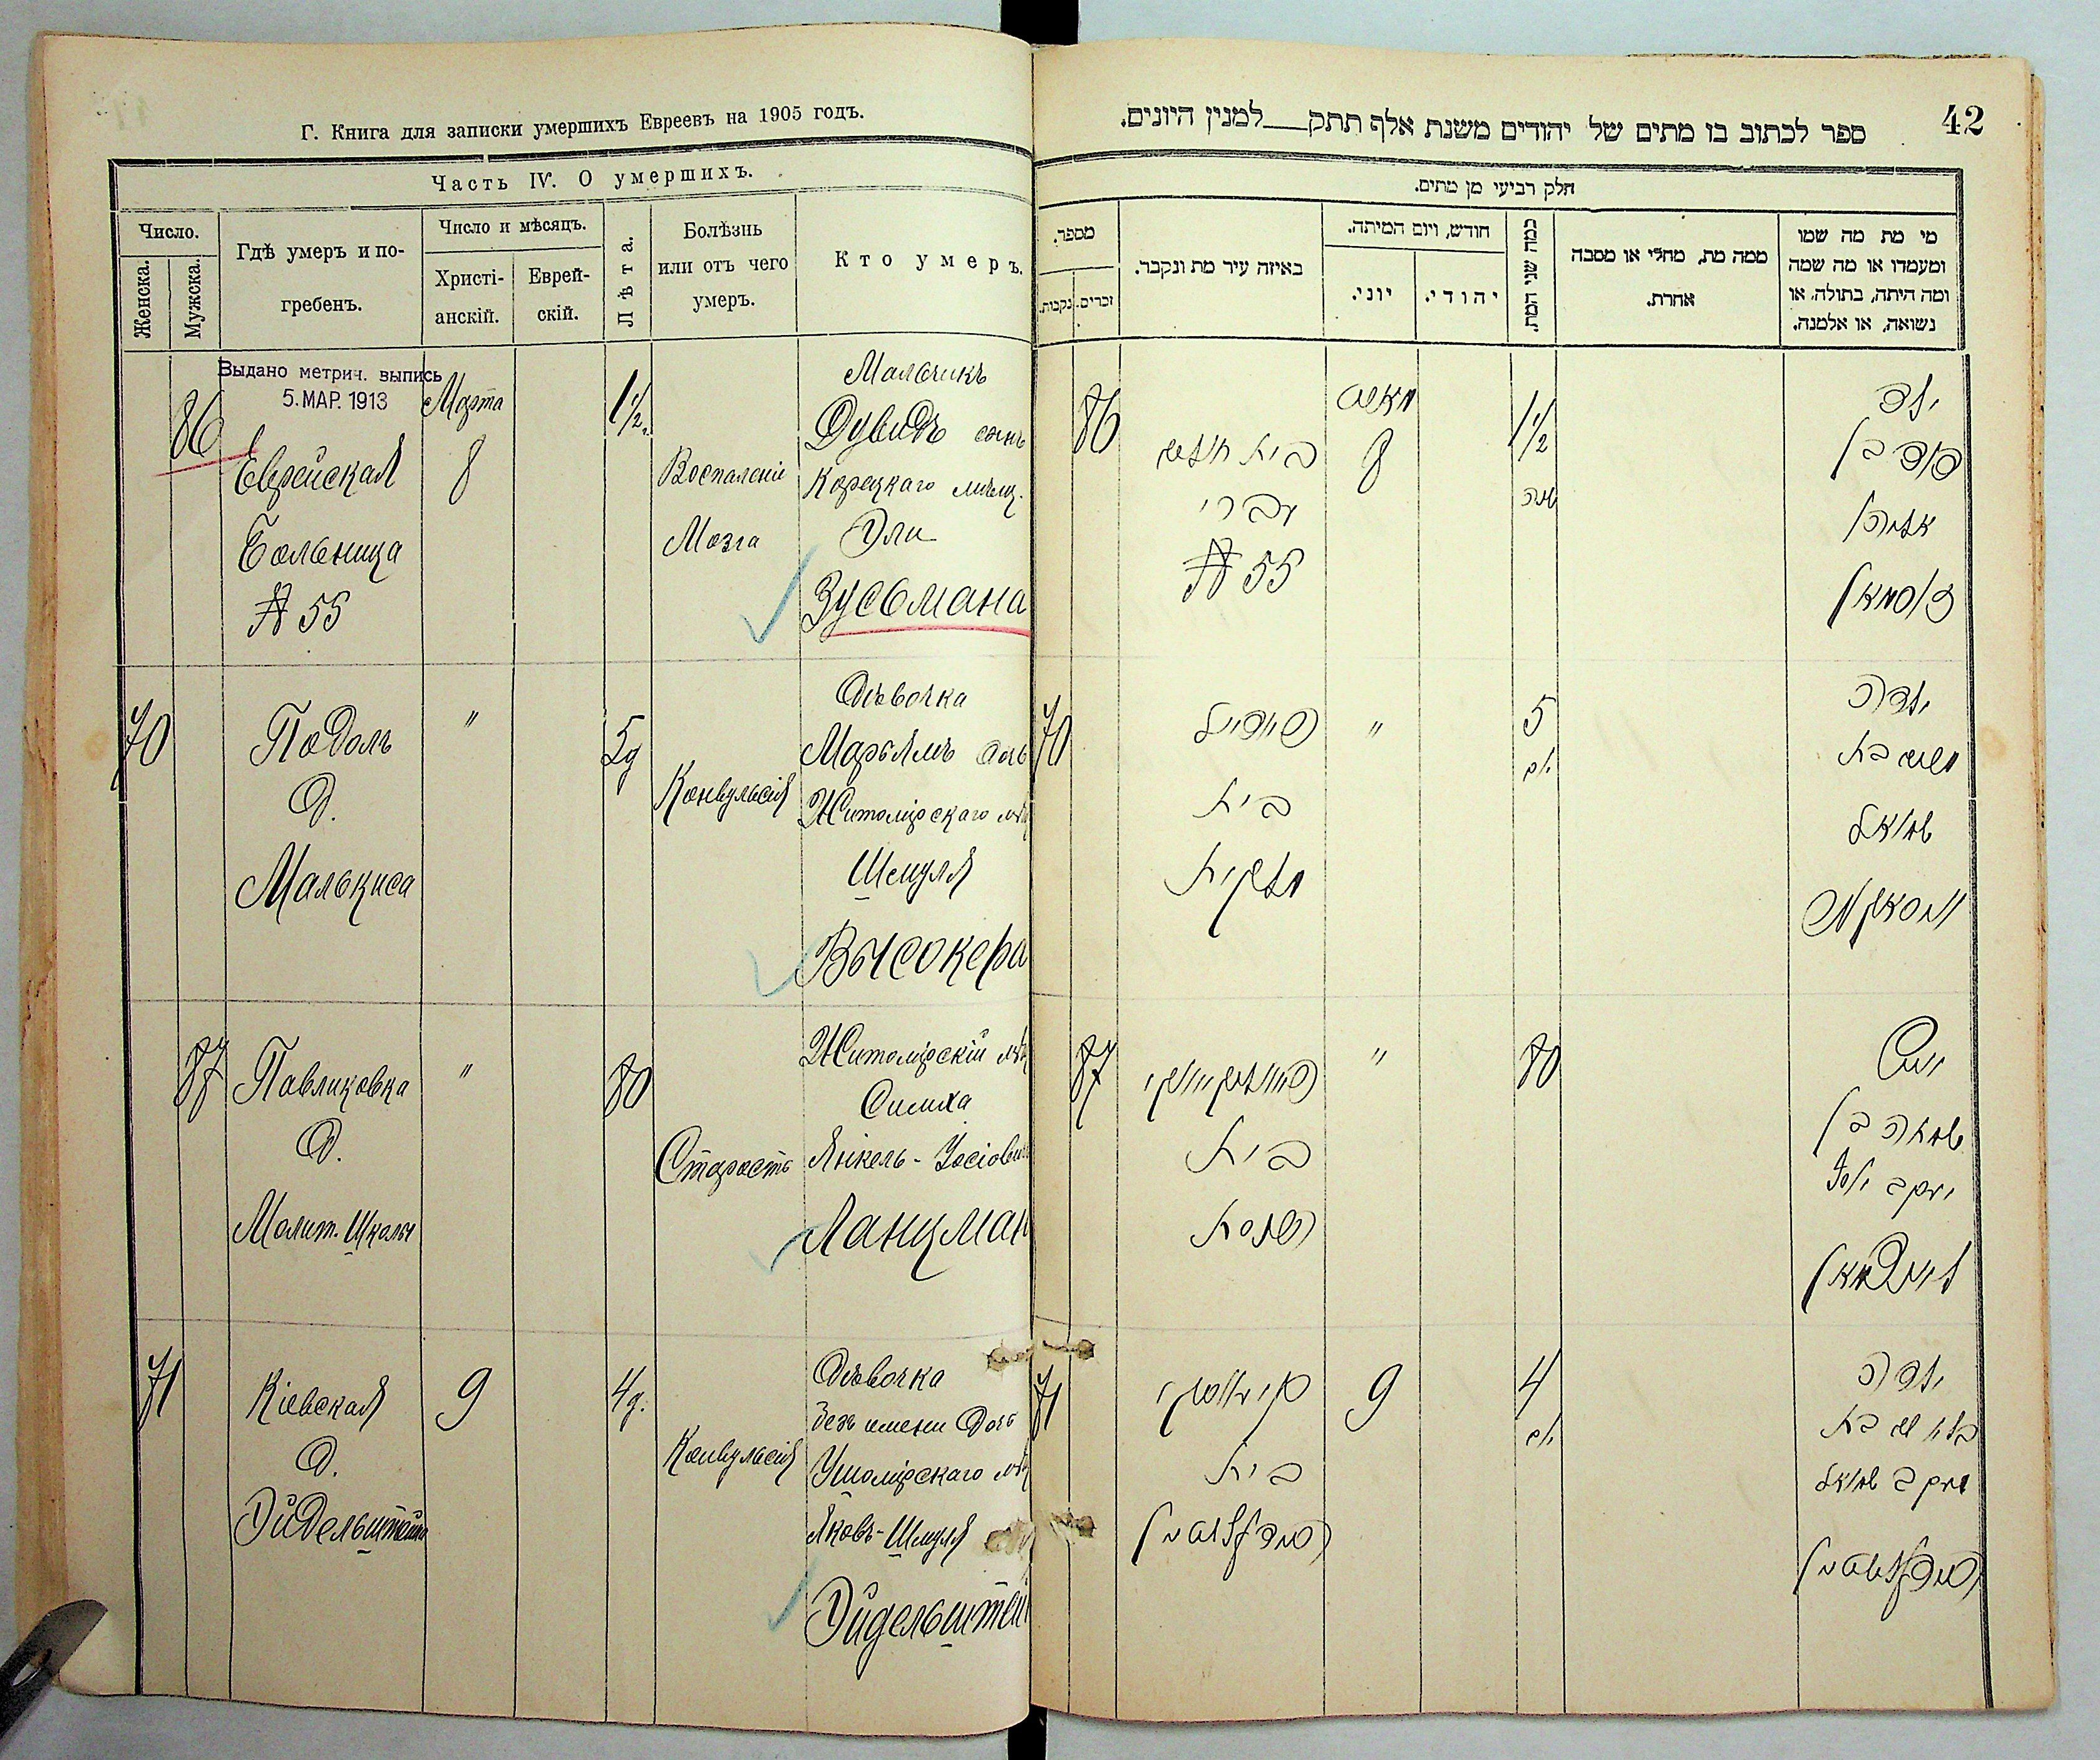 Г. Книга для записки умершихъ Евреевъ на 1905 годъ.
Часть IV. О умершихъ.
Число.
Женска.
Мужска.
Гдѣ умеръ и по-
гребенъ.
Число и мѣсяцъ.
Христі-
анскій.
Еврей-
скій.
Лѣта.
Болѣзнь
или отъ чего
умеръ.
Кто умеръ.
Выдано метрич. выпись
5. МАР. 1913
86
Еврейская
Больница
№ 55
Марта
8
1½ г.
Воспаленіе
Мозга
Мальчикъ
Дувидъ сынъ
Корецкаго мѣщ.
Эли
Зусьмана
70
Подолъ
д.
Малькиса
"
5д
Конвульсія
Дѣвочка
Марьямъ дочь
Житомірскаго мѣщ
Шмуля
Высокера
87
Павликовка
д.
Молит. Школы
"
80
Старость
Житомірскій мѣщ
Симха
Янкель-Іосіовичъ
Ланцман
71
Кіевская
д.
Эйдельштейна
9
4д.
Конвульсія
Дѣвочка
безъ имени дочь
Ушомірскаго мѣщ
Яковъ-Шмуля
Эйдельштей
42
ספר לכתוב בו מתים של יהודים משנת אלף תתק___למנין היונים.
חלק רביעי מן מתים.
מספר.
נקבות.
זכרים.
באיזה עיר מת ונקבר.
חודש, ויום המיתה.
יוני.
יהודי.
כמה שני המת.
ממה מת, מחלי או מסבה
אחרת.
מי מת מה שמו
ומעמדו או מה שמה
ומה היתה, בתולה, או
נשואה, או אלמנה.
86
בית חולים
עברי
№ 55
מארט
8
1½
שנה
ילד
דוד בן
אליהו
זוסמאן
70
פאדאל
בית
מלקיס
"
5
ילדה
מרים בת
שמואל
87
בית
"
80
שמחה בן
יעקב יוסף
לאנצמאן
71
בית
9
4
ילדה
בלי שם בת
יעקב שמואל